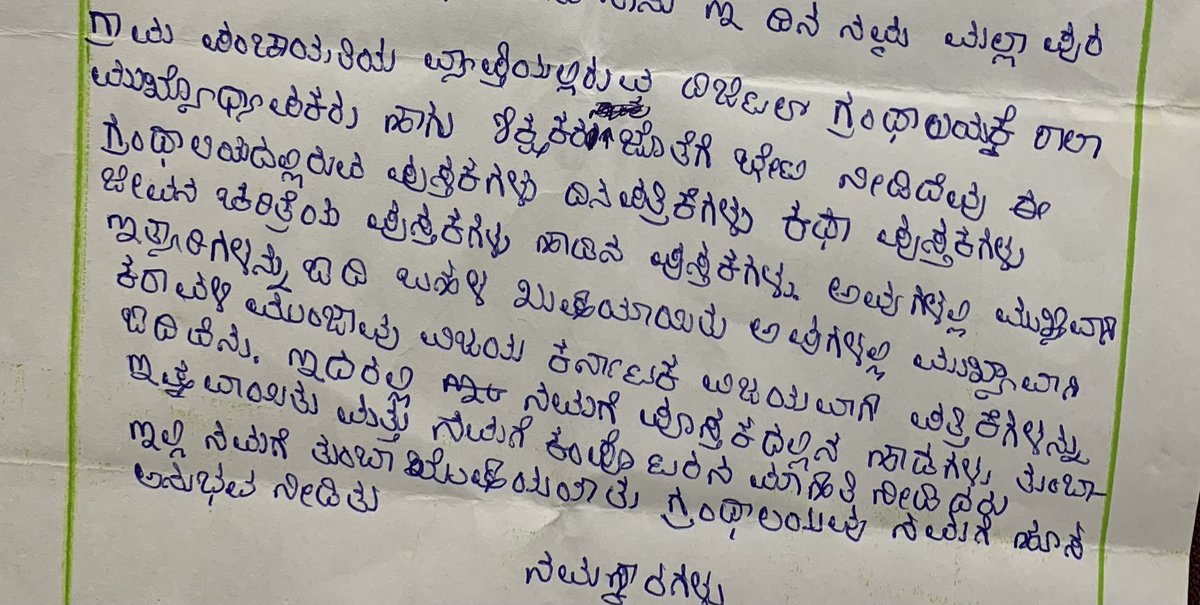 ಈ ದಿನ ನಮ್ಮ ಮಲ್ಲಾಪುರ
ಗ್ರಾಮ ಪಂಚಾಯತಿಯ ವ್ಯಾಪ್ತಿಯಲ್ಲಿರುವ ಡಿಜಿಟಲ್ ಗ್ರಂಥಾಲಯಕ್ಕೆ ಶಾಲಾ
ಮುಖ್ಯೋಧ್ಯಾಪಕರು ಹಾಗು ಶಿಕ್ಷಕರ ಜೊತೆಗೆ ಭೇಟಿ ನೀಡಿದೆವು ಈ
ಗ್ರಂಥಾಲಯದಲ್ಲಿರುವ ಪುಸ್ತಕಗಳು ದಿನಪತ್ರಿಕೆಗಳು ಕಥಾ ಪುಸ್ತಕಗಳು
ಜೀವನ ಚರಿತ್ರೆಯ ಪುಸ್ತಕಗಳು ಹಾಡಿನ ಪುಸ್ತಕಗಳು. ಅವುಗಳಲ್ಲಿ ಮುಖ್ಯವಾಗಿ
ಇತ್ಯಾದಿಗಳನ್ನು ಓದಿ ಬಹಳ ಖುಷಿಯಾಯಿತು ಅವುಗಳಲ್ಲಿ ಮುಖ್ಯವಾಗಿ
ಕರಾವಳಿ ಮುಂಜಾವು ವಿಜಯ ಕರ್ನಾಟಕ ವಿಜಯವಾಣಿ ಪತ್ರಿಕೆಗಳನ್ನು
ಓದಿದೆನು. ಇದರಲ್ಲಿ ನಮಗೆ ಪುಸ್ತಕದಲ್ಲಿನ ಹಾಡುಗಳು ತುಂಬಾ
ಇಷ್ಟವಾಯಿತು ಮತ್ತು ನಮಗೆ ಕಂಪ್ಯೂಟರನ ಮಾಹಿತಿ ನೀಡಿದರು
ಇಲ್ಲಿ ನಮಗೆ ತುಂಬಾ ಗ್ರಂಥಾಲಯವು ನಮಗೆ ಹೊಸ
ಅನುಭವ ನೀಡಿತು
ನಮಸ್ಕಾರಗಳು